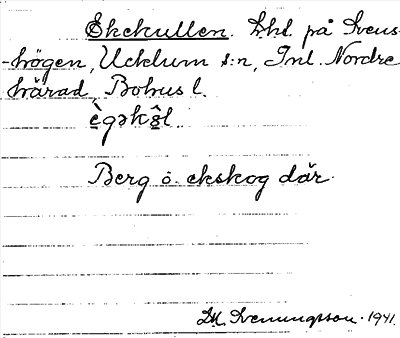 Ekekullen. Lhl. på Svens-
-högen, Ucklum s:n, Inl. Nordre
härad, Bohus l.
ègəkŝl.
Berg o. ekskog där.
Svenungsson. 1941.